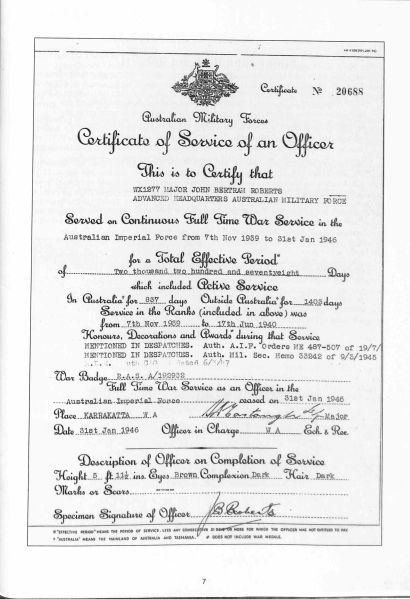 Certificate No 20688
Australian Military Forces
Certificate of Service of an Officer
This is to Certify that
WX1277 MAJOR JOHN BERTRAM ROBERTS
ADVANCED HEADQUARTERS AUSTRALIAN MILITARY FORCE
Served on Continuous Full Time War Service in the
Australian Imperial Force from 7th Nov 1939 to 31st Jan 1946
for a Total Effective Period*
of Two thousand two hundred and seventyeight Days
which included Active Service
In Australia† for 937 days Outside Australia† for 1403 days
Service in the Ranks (included in above) was
from 7th Nov 1939 to 17th Jun 1940
Honours, Decorations and Awards‡ during that Service
MENTIONED IN DESPATCHES. Auth. A.I.F. Orders ME 487-507 of 19/7/
MENTIONED IN DESPATCHES. Auth. Mil. Sec. Memo 33242 of 9/3/1945
dated 6/3/47
War Badge R.A.S. A/192932
Full Time War Service as an Officer in the
Australian Imperial Force ceased on 31st Jan 1946
Place KARRAKATTA W A Major
Date 31st Jan 1946 Officer in Charge W A Ech & Rec.
Description of Officer on Completion of Service
Height 5 ft 11½ ins Eyes Brown Complexion Dark Hair Dark
Marks or Scars
Specimen Signature of Officer JBRoberts
* "EFFECTIVE PERIOD" MEANS THE PERIOD OF SERVICE, LESS ANY CONSECUTIVE 21 DAYS OR MORE FOR WHICH THE OFFICER WAS NOT ENTITLED TO PAY
† "AUSTRALIA" MEANS THE MAINLAND OF AUSTRALIA AND TASMANIA. ‡ DOES NOT INCLUDE WAR MEDALS.
7